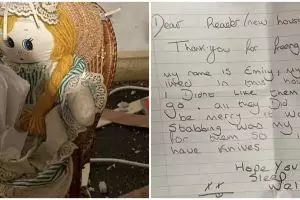 Dear Reader/new hous
Thank you for freeing
my name is Emily, my
lived in
Didnt like them
go, all they did
be merry it wa
stabbing was my
for them so
have knives
Hope You
Sleep
Wel
xx